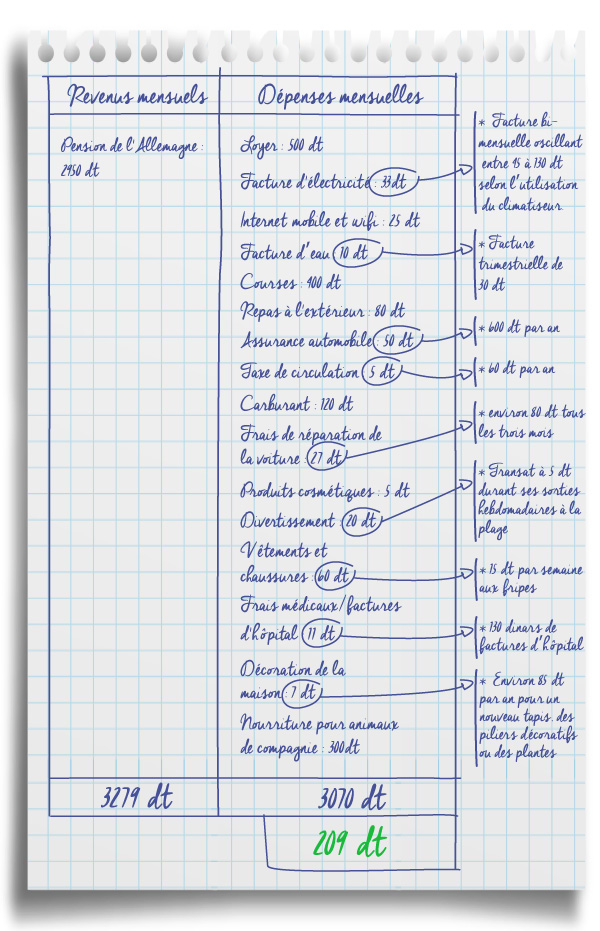 Revenus mensuels
Dépenses mensuelles
Pension de l'Allemagne :
2950 dt
Loyer : 500 dt
Facture d'électricité : 33dt
Internet mobile et wifi : 25 dt
Facture d'eau 10 dt
Courses : 400 dt
Repas à l'extérieur : 80 dt
Assurance automobile : 50 dt
Taxe de circulation 5 dt
Carburant : 120 dt
Frais de réparation de
la voiture : 27 dt
Produits cosmétiques : 5 dt
Divertissement : 20 dt
Vêtements et
chaussures : 60 dt
Frais médicaux/factures
d'hôpital 11 dt
Décoration de la
maison : 7 dt
Nourriture pour animaux
de compagnie : 300dt
* Facture bi-
mensuelle oscillant
entre 45 à 130 dt
selon l'utilisation
du climatiseur
* Facture
trimestrielle de
30 dt
* 600 dt par an
* 60 dt par an
* environ 80 dt tous
les trois mois
* Transat à 5 dt
durant ses sorties
hebdomadaires à la
plage
* 15 dt par semaine
aux fripes
* 130 dinars de
factures d'hôpital
* Environ 85 dt
par an pour un
nouveau tapis, des
piliers décoratifs
ou des plantes
3279 dt
3070 dt
209 dt